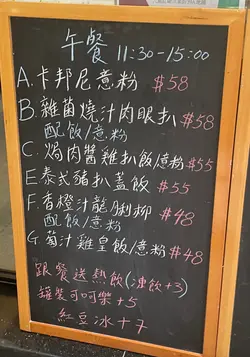 午餐 11:30-15:00
A.卡邦尼意粉 $58
B.雜菌燒汁肉眼扒 $58
配飯/意粉
C.焗肉醬雞扒飯/意粉 $55
E泰式豬扒蓋飯 $55
F.香橙汁龍脷柳 $48
配飯/意粉
G.葡汁雞皇飯/意粉 $48
跟餐送熱飲(凍飲+3)
罐裝可口可樂+5
紅豆冰+7